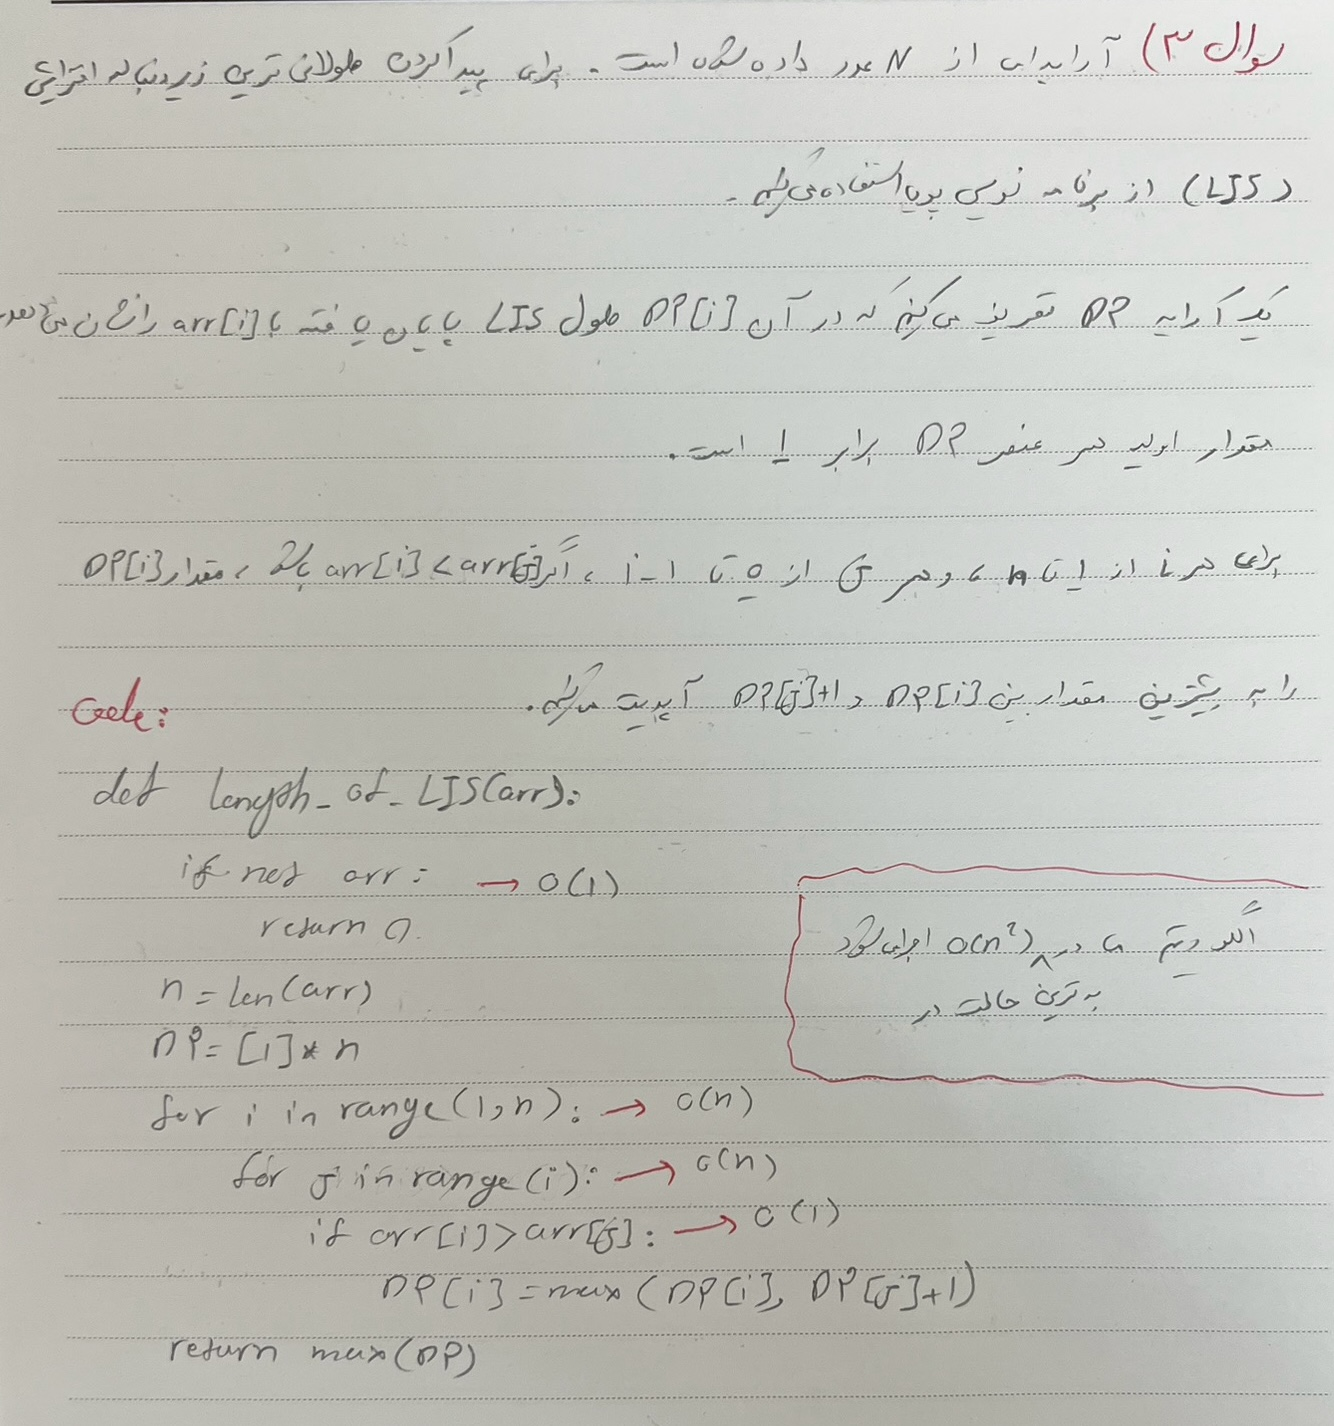 سوال ۳) آرایه‌ای از N عدد داده شده است. برای پیدا کردن طولانی ترین زیر دنباله افزایشی
(LIS) از برنامه نویسی پویا استفاده می‌کنیم.
یک آرایه DP تعریف می‌کنیم که در آن DP[i] طول LIS پایان یافته با arr[i] را نشان می‌دهد.
مقدار اولیه هر عنصر DP برابر 1 است.
برای هر i از 1 تا n، و هر j از 0 تا i-1، اگر arr[i] < arr[j] باشد، مقدار DP[i]
را به بیشترین مقدار بین DP[i] و DP[j]+1 آپدیت می‌کنیم.
Code:
def length_of_LIS(arr):
if not arr: → O(1)
return 0.
n = len(arr)
DP = [1] * n
for i in range(1,n): → O(n)
for j in range(i): → O(n)
if arr[i] > arr[j]: → O(1)
DP[i] = max(DP[i], DP[j]+1)
return max(DP)
الگوریتم ما در O(n²) اجرا می‌شود
بدترین حالت در